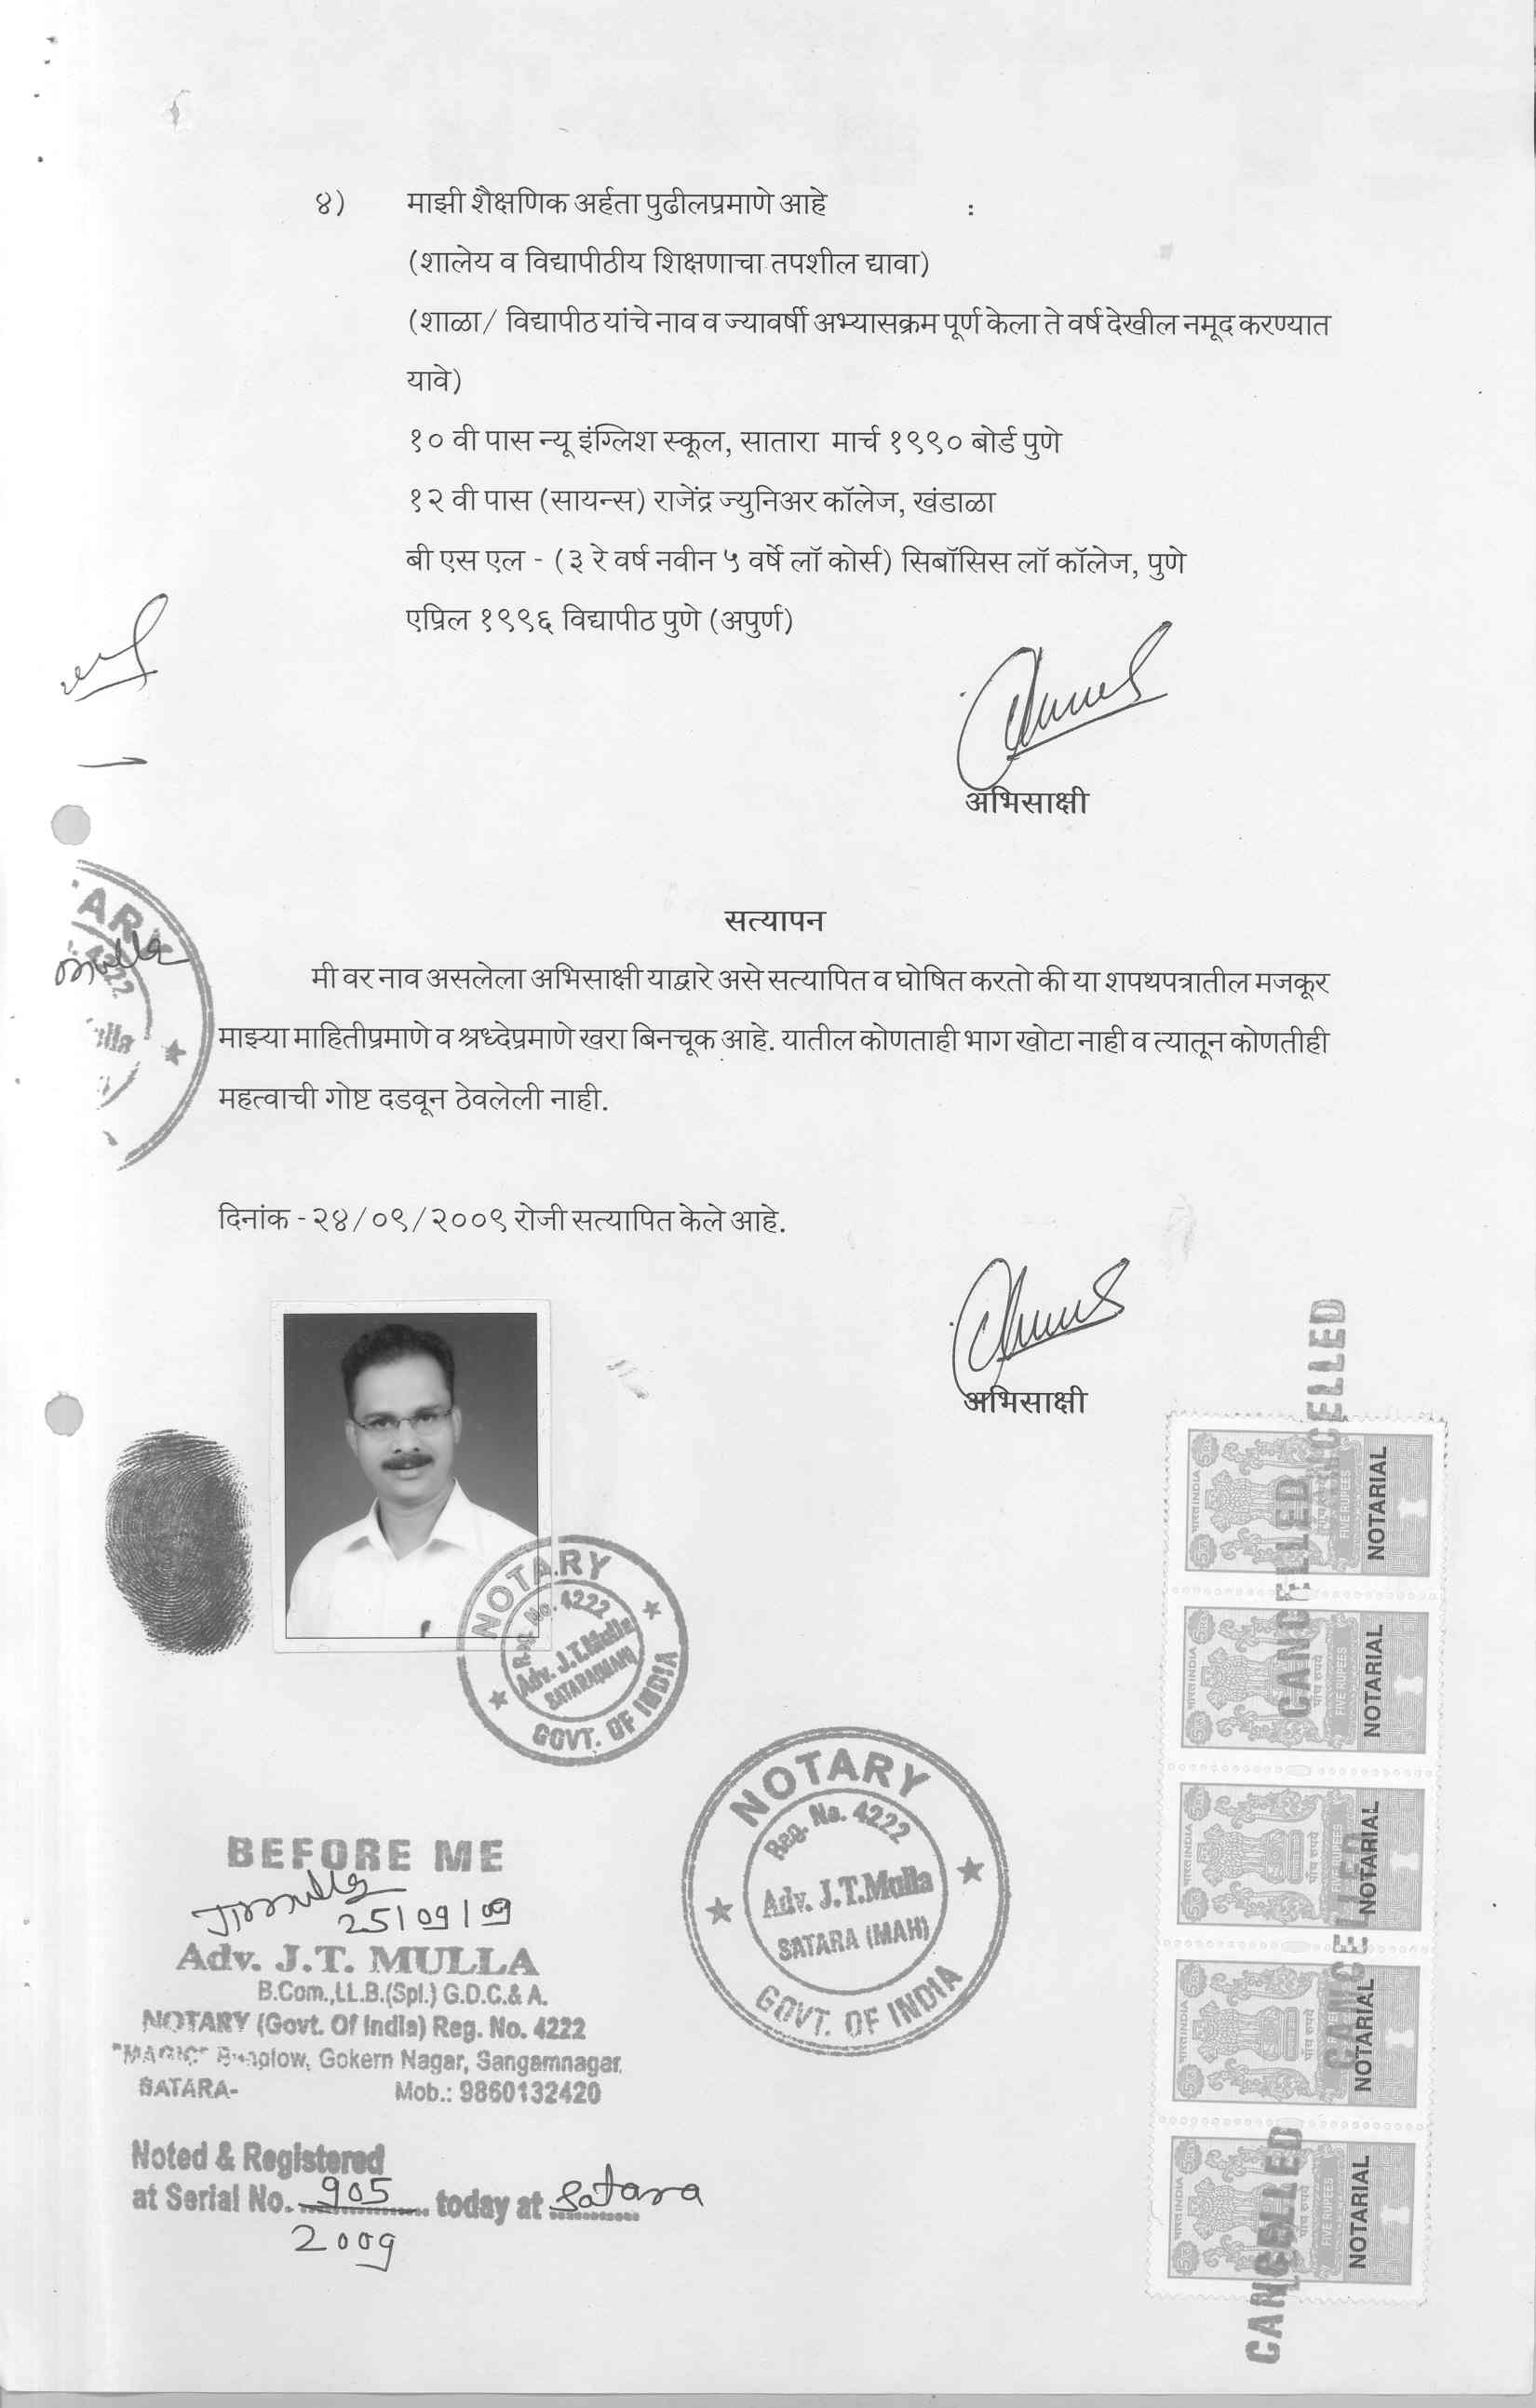 ४) माझी शैक्षणिक अर्हता पुढीलप्रमाणे आहे :
(शालेय व विद्यापीठीय शिक्षणाचा तपशील द्यावा)
(शाळा/ विद्यापीठ यांचे नाव व ज्यावर्षी अभ्यासक्रम पूर्ण केला ते वर्ष देखील नमूद करण्यात
यावे)
१० वी पास न्यू इंग्लिश स्कूल, सातारा मार्च १९९० बोर्ड पुणे
१२ वी पास (सायन्स) राजेंद्र ज्युनिअर कॉलेज, खंडाळा
बी एस एल - (३ रे वर्ष नवीन ५ वर्षे लॉ कोर्स) सिबॉसिस लॉ कॉलेज, पुणे
एप्रिल १९९६ विद्यापीठ पुणे (अपुर्ण)
अभिसाक्षी
सत्यापन
मी वर नाव असलेला अभिसाक्षी याद्वारे असे सत्यापित व घोषित करतो की या शपथपत्रातील मजकूर
माझ्या माहितीप्रमाणे व श्रध्देप्रमाणे खरा बिनचूक आहे. यातील कोणताही भाग खोटा नाही व त्यातून कोणतीही
महत्वाची गोष्ट दडवून ठेवलेली नाही.
दिनांक - २४/०९/२००९ रोजी सत्यापित केले आहे.
अभिसाक्षी
NOTARY
Reg. No. 4222
Adv. J.T.Mulla
SATARA(MAH)
GOVT. OF INDIA
NOTARY
Reg. No. 4222
Adv. J.T.Mulla
SATARA (MAH)
GOVT. OF INDIA
BEFORE ME
25/09/09
Adv. J.T. MULLA
B.Com.,LL.B.(Spl.) G.D.C.& A.
NOTARY (Govt. Of India) Reg. No. 4222
"MAGIC" Gokern Nagar, Sangamnagar,
SATARA- Mob.: 9860132420
Noted & Registered
at Serial No. 905 today at Satara
2009
भारत INDIA पाँच रुपये FIVE RUPEES NOTARIAL
भारत INDIA पाँच रुपये FIVE RUPEES NOTARIAL
भारत INDIA पाँच रुपये FIVE RUPEES NOTARIAL
भारत INDIA पाँच रुपये FIVE RUPEES NOTARIAL
भारत INDIA पाँच रुपये FIVE RUPEES NOTARIAL
CANCELLED
CANCELLED
CANCELLED
CANCELLED